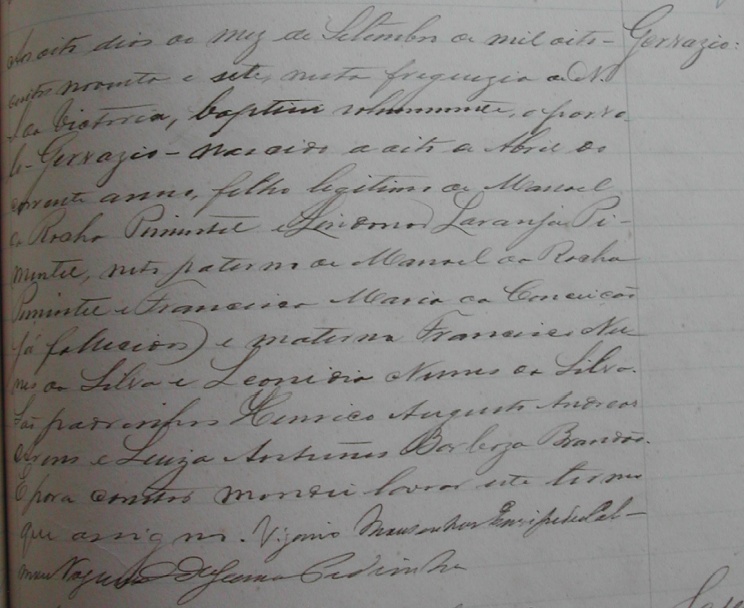 Aos oito dias do mez de Setembro de mil oito- Gervazio:
centos noventa e sete, nesta freguezia de N. S.
da Victoria, baptisei solemnemente, o parvo-
lo Gervazio - nascido a oito de Abril do
corrente anno, filho legitimo de Manoel
da Rocha Pimentel e Laranja Pi-
mentel, neto paterno de Manoel da Rocha
Pimentel e Francisca Maria da Conceição
(já fallecidos) e materno Francisco Nu-
nes da Silva e Leonidia Nunes da Silva.
São padrinhos Henrico Augusto
e Luiza Antunes Brandão.
E para constar mandei lavrar este termo
que assigno. Vigario Monsenhor